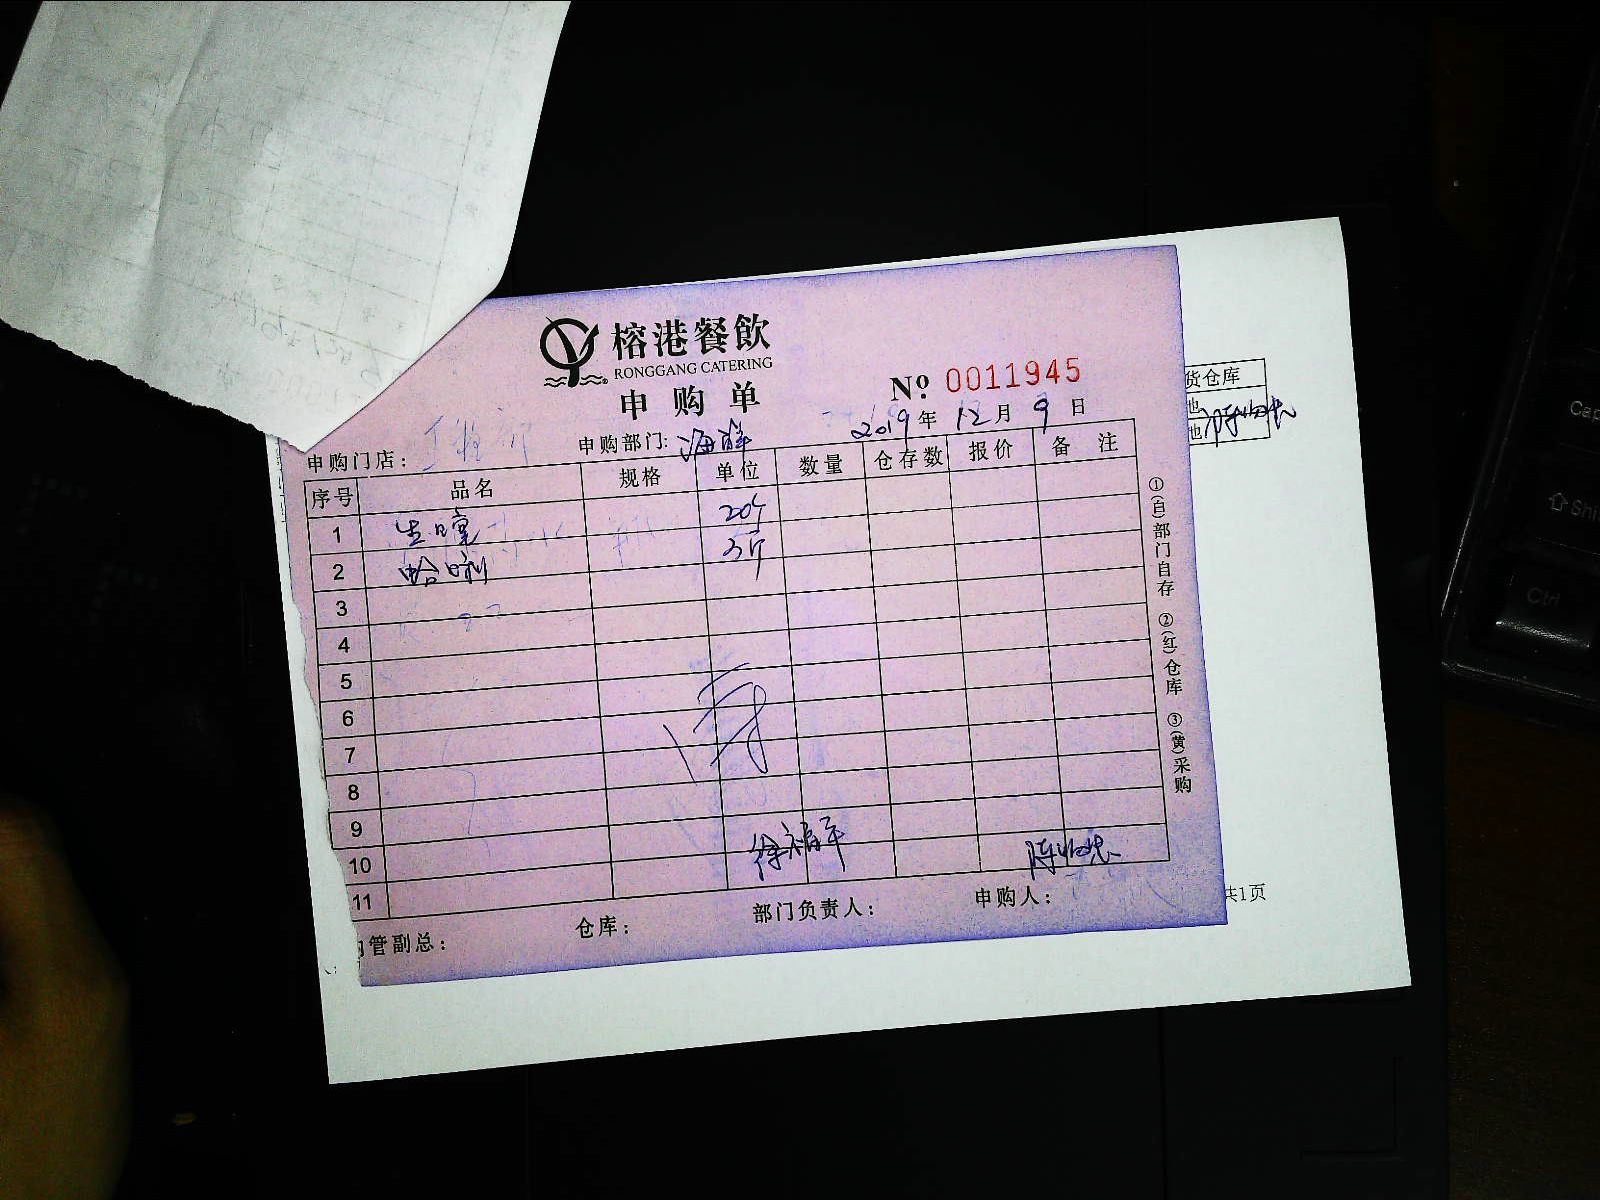 榕港餐飲
RONGGANG CATERING
申购单
№ 0011945
2019年12月9日
申购门店：
申购部门：海鲜
序号 品名 规格 单位 数量 仓存数 报价 备注
1 20斤
2 哈蜊 3斤
3
4
5
6
7
8
9
10
11
徐福平
管副总：
仓库：
部门负责人：
申购人：
①(白)部门自存 ②(红)仓库 ③(黄)采购
货仓库
共1页
Cap
Shi
Ctrl